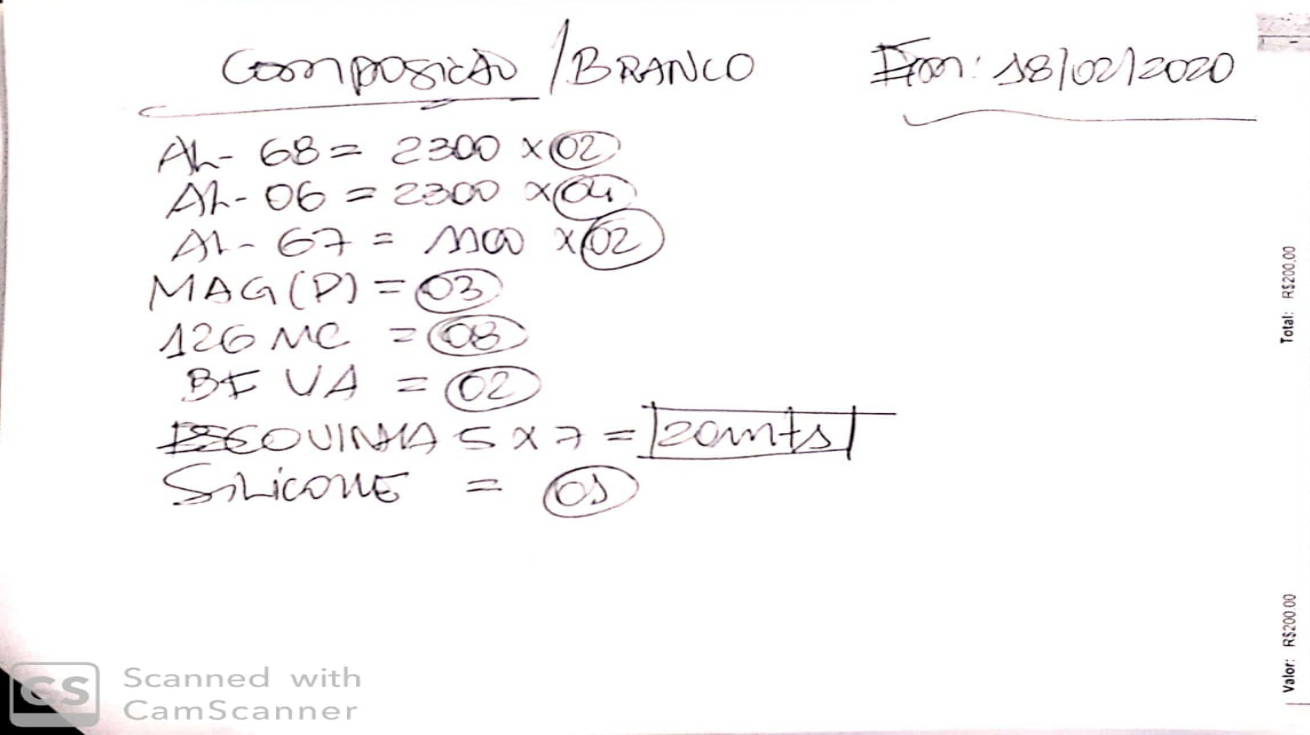 COMPOSICAO / BRANCO
Em: 18/02/2020
AL- 68 = 2300 x 02
AL- 06 = 2300 x 04
AL- 67 = 1100 x 02
MAG (P) = 03
126 MC = 08
BF VA = 02
ESCOVINHA 5 X 7 = 20mts
SILICONE = 01
Total: R$200,00
Valor: R$200,00
CS
Scanned with
CamScanner